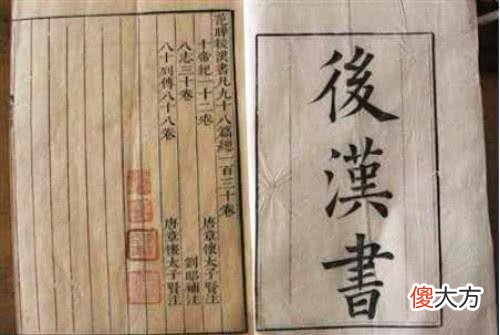 後漢書
范曄後漢書凡九十八篇總一百三十卷
十帝紀一十二卷 唐章懷太子賢注
八志三十卷 劉昭補注
八十列傳八十八卷 唐章懷太子賢注
傻大方